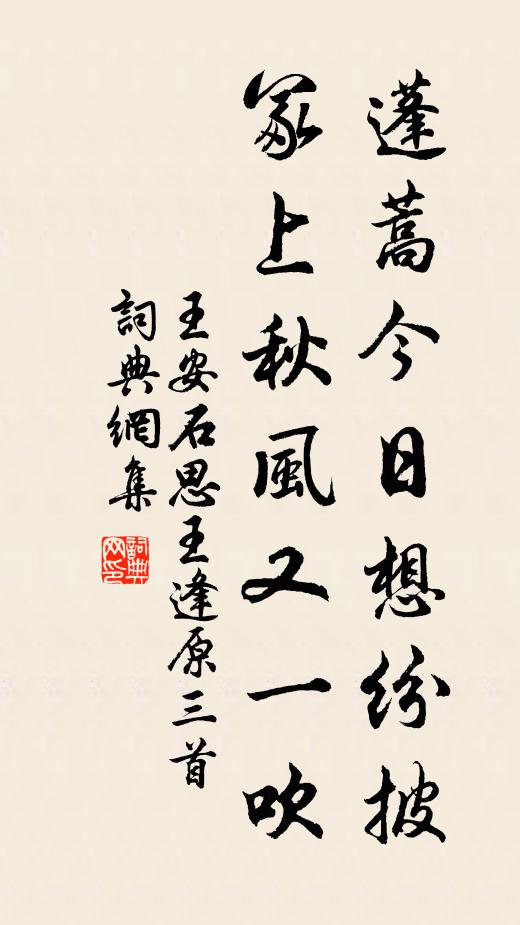 蓬蒿今日想紛披
冢上秋風又一吹
王安石思王逢原三首
詞典網集
詞典
网印